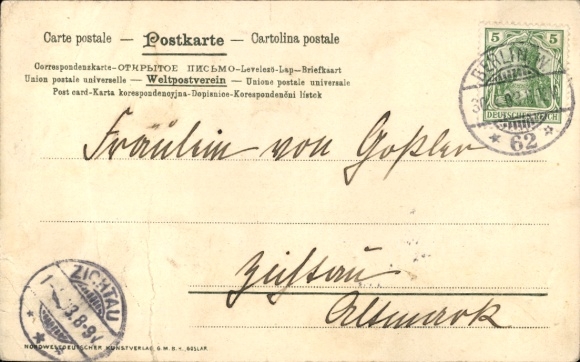 Carte postale – Postkarte – Cartolina postale
Correspondenskarte–ОТКРЫТОЕ ПИСЬМО–Levelező-Lap–Briefkaart
Union postale universelle – Weltpostverein – Unione postale universale
Post card–Karta korespondencyjna–Dopisnice–Korespondenční lístek
5 5
DEUTSCHES REICH
BERLIN W
* 62 *
Fräulein von Goßler
Zichtau
Altmark
ZICHTAU
8-9V
NORDWESTDEUTSCHER KUNSTVERLAG G.M.B.H., GOSLAR.